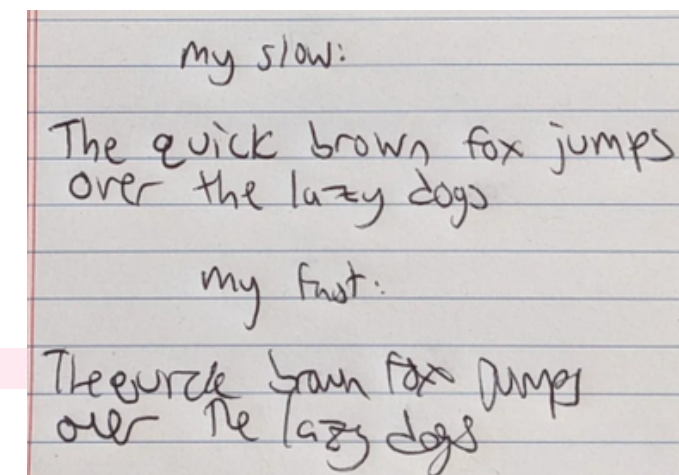 my slow:
The quick brown fox jumps
over the lazy dogs
my fast:
The quick brown fox jumps
over the lazy dogs